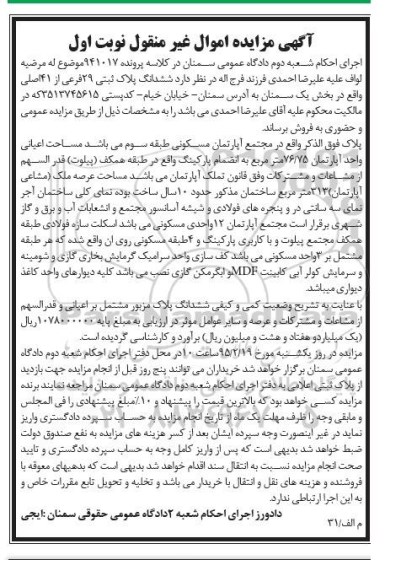 آگهی مزایده اموال غیر منقول نوبت اول
اجرای احکام شعبه دوم دادگاه عمومی سمنان در کلاسه پرونده ۹۴۱۰۱۷موضوع له مرضیه
لواف علیه علیرضا احمدی فرزند فرج اله در نظر دارد ششدانگ پلاک ثبتی ۲۹فرعی از ۴۱اصلی
واقع در بخش یک سمنان به آدرس سمنان– خیابان خیام– کدپستی ۳۵۱۳۷۴۵۶۱۵که در
مالکیت محکوم علیه آقای علیرضا احمدی می باشد را به مشخصات ذیل از طریق مزایده عمومی
و حضوری به فروش برساند.
پلاک فوق الذکر واقع در مجتمع آپارتمان مسکونی طبقه سوم می باشد مساحت اعیانی
واحد آپارتمان ۷۶/۷۵متر مربع به انضمام پارکینگ واقع در طبقه همکف (پیلوت) قدر السهم
از مشاعات و مشترکات وفق قانون تملک آپارتمان می باشد مساحت عرصه ملک (مشاعی
آپارتمان)۳۱۲متر مربع ساختمان مذکور حدود ۱۰سال ساخت بوده نمای کلی ساختمان آجر
نمای سه سانتی در و پنجره های فولادی و شیشه آسانسور مجتمع و انشعابات آب و برق و گاز
شهری برقرار است مجتمع آپارتمان ۱۲واحدی مسکونی می باشد اسکلت سازه فولادی طبقه
همکف مجتمع پیلوت و با کاربری پارکینگ و ۴طبقه مسکونی روی ان واقع شده که هر طبقه
مشتمل بر ۳واحد مسکونی می باشد کف سازی واحد سرامیک گرمایش بخاری گازی و شومینه
و سرمایش کولر آبی کابینت MDFو ابگرمکن گازی نصب می باشد کلیه دیوارهای واحد کاغذ
دیواری میباشد.
با عنایت به تشریح وضعیت کمی و کیفی ششدانگ پلاک مزبور مشتمل بر اعیانی و قدرالسهم
از مشاعات و مشترکات و عرصه و سایر عوامل موثر در ارزیابی به مبلغ پایه ۱۰۷۸۰۰۰۰۰۰ریال
(یک میلیاردو هفتاد و هشت و میلیون ریال) برآورد و کارشناسی گردیده است.
مزایده در روز یکشنبه مورخ ۹۵/۲/۱۹ساعت ۱۰در محل دفتر اجرای احکام شعبه دوم دادگاه
عمومی سمنان برگزار خواهد شد خریداران می توانند پنج روز قبل از انجام مزایده جهت بازدید
از پلاک ثبتی اعلامی به دفتر اجرای احکام شعبه دوم دادگاه عمومی سمنان مراجعه نمایند برنده
مزایده کسی خواهد بود که بالاترین قیمت را پیشنهاد و ۱۰٪مبلغ پیشنهادی را فی المجلس
و مابقی وجه را ظرف مهلت یک ماه از تاریخ انجام مزایده به حساب سپرده دادگستری واریز
نماید در غیر اینصورت وجه سپرده ایشان بعد از کسر هزینه های مزایده به نفع صندوق دولت
ضبط خواهد شد بدیهی است که پس از واریز کامل وجه به حساب سپرده دادگستری و تایید
صحت انجام مزایده نسبت به انتقال سند اقدام خواهد شد بدیهی است که بدهیهای معوقه با
فروشنده و هزینه های نقل و انتقال با خریدار می باشد و تخلیه و تحویل تابع مقررات خاص و
به این اجرا ارتباطی ندارد.
دادورز اجرای احکام شعبه ۲دادگاه عمومی حقوقی سمنان :ایجی
م الف/۳۱